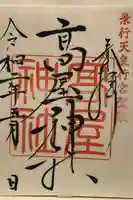 景行天皇行宮
奉拝
高屋神社
高屋神社
令和元年五月 日